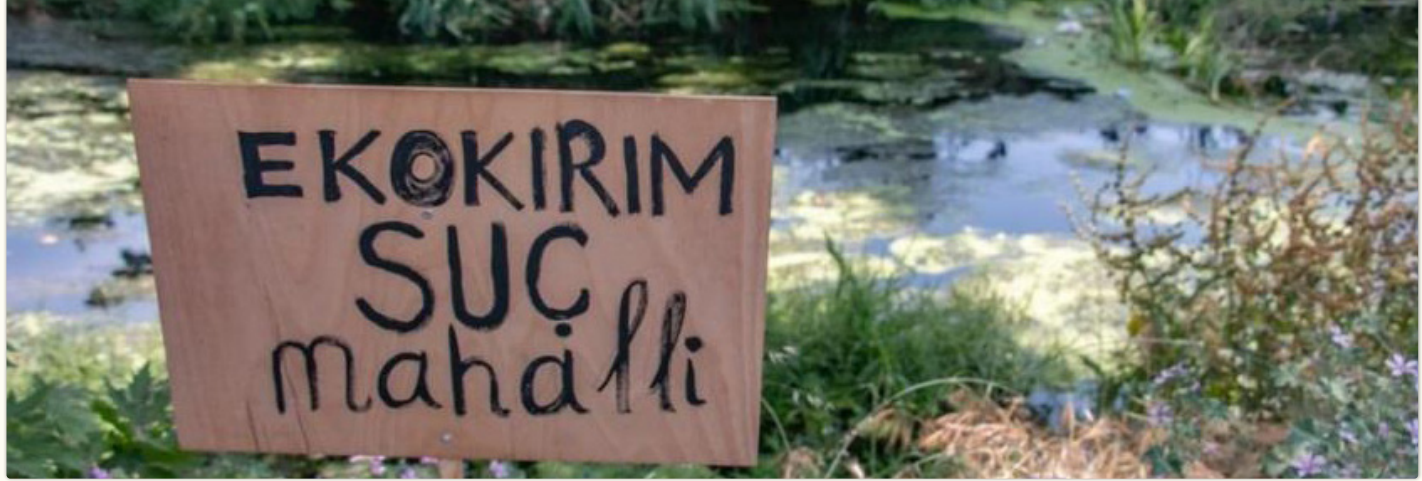 EKOKIRIM
SUÇ
mahalli